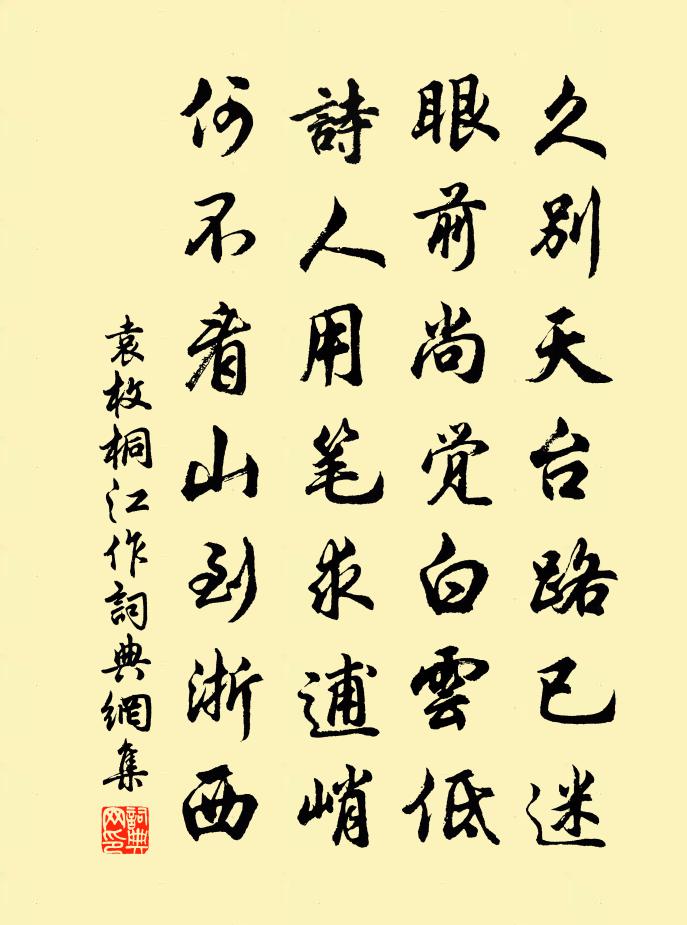 久别天台路已迷
眼前尚觉白雲低
詩人用笔求逋峭
何不看山到浙西
袁枚桐江作詞典網集
詞典网印